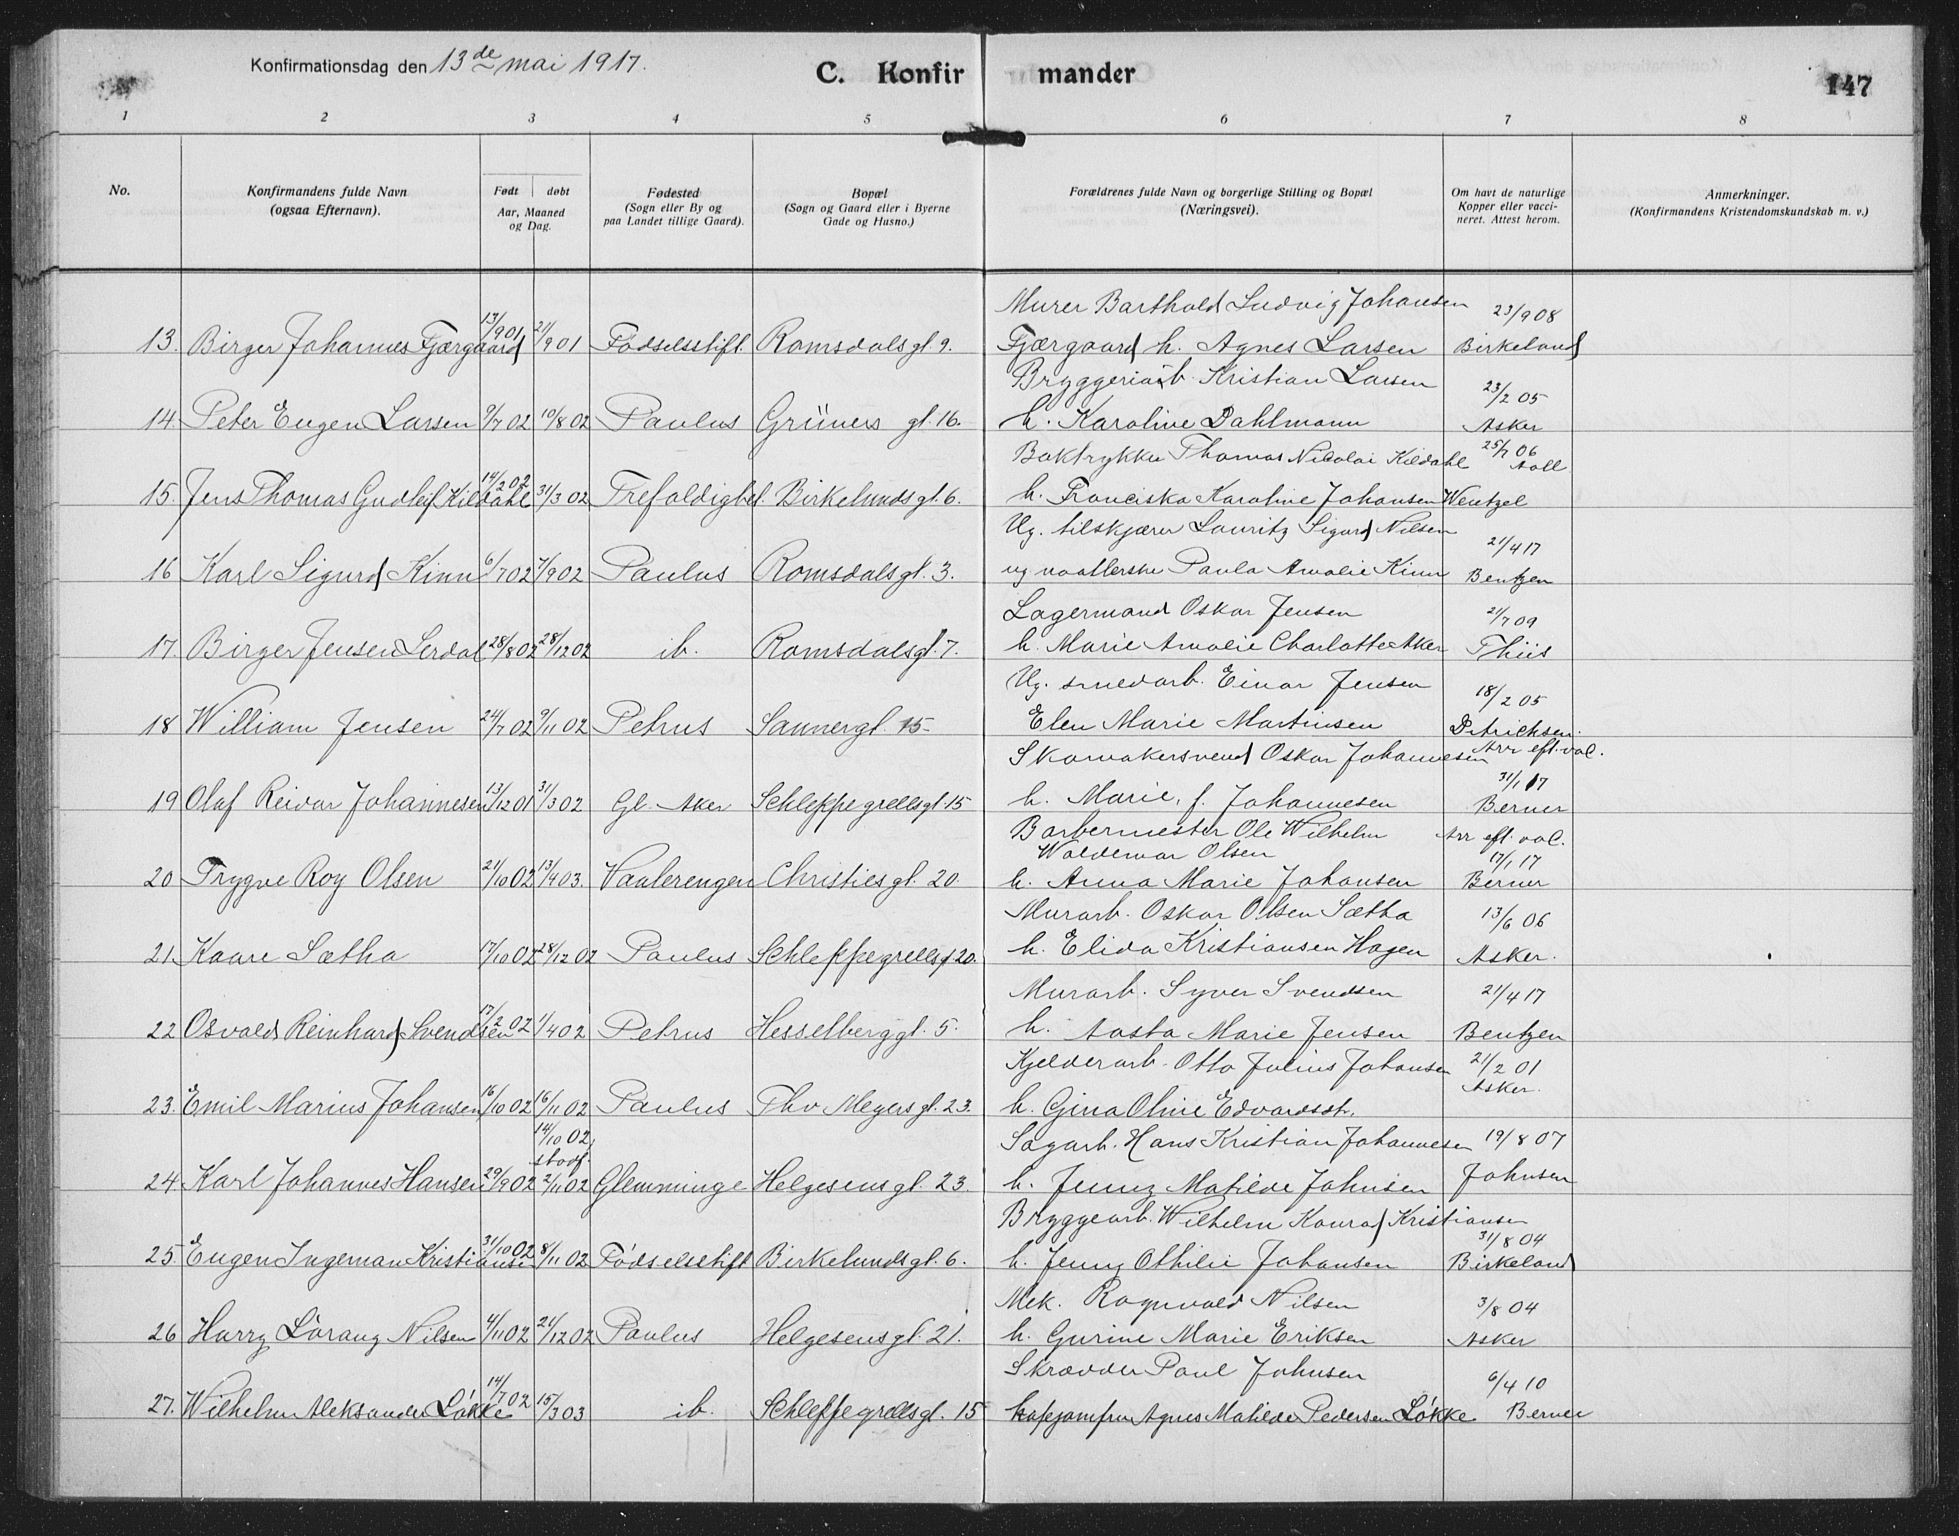 Konfirmationsdag den 13de mai 1917.
C. Konfirmander
147
1 2 3 4 5 6 7 8
No.
Konfirmandens fulde Navn (ogsaa Efternavn).
Født | døbt Aar, Maaned og Dag.
Fødested (Sogn eller By og paa Landet tillige Gaard).
Bopæl (Sogn og Gaard eller i Byerne Gade og Husno.)
Forældrenes fulde Navn og borgerlige Stilling og Bopæl (Næringsvei).
Om havt de naturlige Kopper eller vaccineret. Attest herom.
Anmerkninger. (Konfirmandens Kristendomskundskab m. v.)
Murer Barthold Ludvig Johansen 23/9 08
13. Birger Johannes Fjærgaard 13/9 01 21/9 01 Fødselsstift. Romsdals gt. 9. Fjærgaard h. Agnes Larsen Birkeland
Bryggeriarb. Kristian Larsen 23/2 05
14. Peter Eugen Larsen 9/7 02 10/8 02 Paulus Grüners gt. 16. h. Karoline Dahlmann Asker
Boktrykker Thomas Nicolai Kildahl 25/7 06
15. Jens Thomas Gudleif Kildahl 14/2 02 31/3 02 Trefoldighet. Birkelunds gt. 6. h. Franciska Karoline Johansen Wentzel
Ug. tilskjærer Lauritz Sigurd Nilsen 21/4 17
16 Karl Sigurd Kinn 6/7 02 7/9 02 Paulus Romsdals gt. 3. ug vaatlerske Paula Amalie Kinn Bentzen
Lagermand Oskar Jensen 21/7 09
17. Birger Jensen Lerdal 28/8 02 28/12 02 ib. Romsdals gt. 7. h. Marie Amalie Charlotte Aker Thiis
Ug. smedarb. Einar Jensen 18/2 05
18 William Jensen 24/7 02 9/11 02 Petrus Sannergt. 15 Elen Marie Martinsen Ditrichsen.
Skomakersvend Oskar Johannesen Arr eft. vac.
31/1 17
19 Olaf Reidar Johannesen 13/12 01 31/3 02 Gl. Aker Schleppegrellsgt 15 h. Marie, f. Johannesen Berner
Barbermester Ole Wilhelm Arr eft. vac.
Waldemar Olsen 17/1 17
20 Trygve Roy Olsen 21/10 02 13/4 03. Vaalerengen Christies gt. 20. h. Anna Marie Johansen Berner
Murarb. Oskar Olsen Sætha 13/6 06
21. Kaare Sætha 17/10 02 28/12 02 Paulus Schleppegrellsgt 20. h. Elida Kristiansen Hagen Asker.
Murarb. Syver Svendsen 21/4 17
22 Osvald Reinhard Svendsen 17/2 02 1/4 02 Petrus Hesselberggt. 5. h. Aasta Marie Jensen Bentzen
Kjelderarb. Otto Julius Johansen 21/2 01
Asker.
23. Emil Marius Johansen 16/10 02 16/11 02 Paulus Thv Meyers gt. 23. h. Gina Oline Edvardsdt.
14/10 02 Sagarb. Hans Kristian Johannesen 19/8 07
stadf.
24. Karl Johannes Hansen 29/9 02 2/11 02 Glemminge Helgesens gt. 23. h. Jenny Matilde Johnsen Johnsen
Bryggearb. Wilhelm Konrad Kristiansen
31/8 04
25. Eugen Ingeman Kristiansen 31/10 02 8/11 02 Fødselsstift Birkelunds gt. 6. h. Jenny Othilie Johansen Birkeland
Mek. Ragnvald Nilsen 3/8 04
26 Harry Lorang Nilsen 4/11 02 21/12 02 Paulus Helgesens gt. 21. h. Gurine Marie Eriksen Asker
Skrædder Paul Johnsen 6/4 10
27. Wilhelm Aleksander Løkke 14/7 02 15/3 03 ib. Schleppegrellsgt. 15 kafejomfru Agnes Matilde Pedersen Løkke Berner